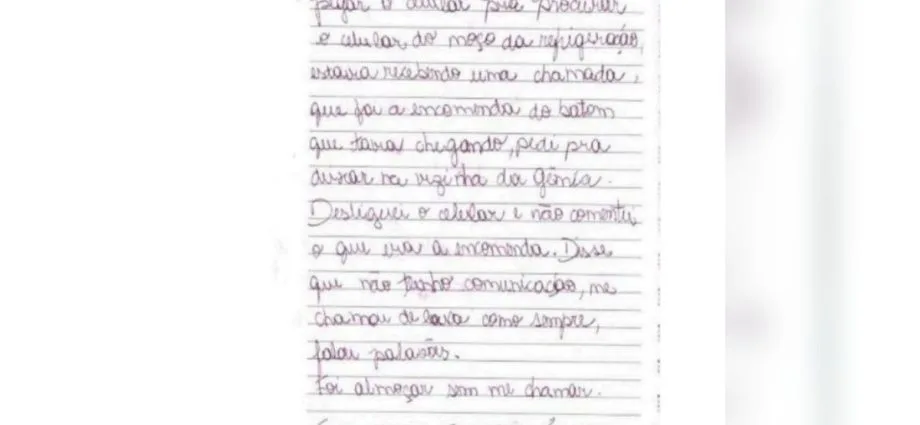 pegar o celular pra procurar
o celular do moço da refrigeração,
estava recebendo uma chamada,
que foi a encomenda do batom
que tava chegando, pedi pra
deixar na vizinha da Gêmea.
Desliguei o celular e não comentei
o que era a encomenda. Disse
que não tenho comunicação, me
chamou de como sempre,
falou palavrões.
Foi almoçar sem me chamar.